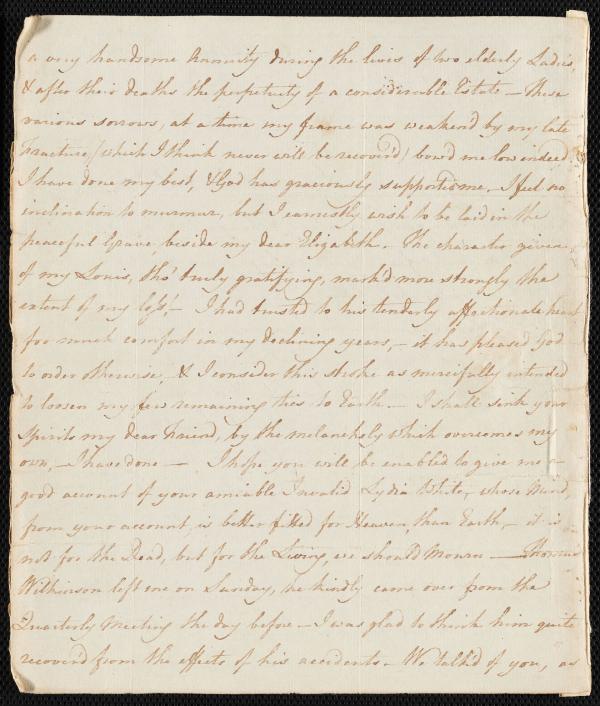 a very handsome Annuity during the lives of two elderly Ladies,
& after their deaths the perpetuity of a considerable Estate — These
various sorrows, at a time my frame was weaken'd by my late
Fracture, (which I think never will be recover'd) bow'd me low indeed.
I have done my best, & God has graciously supported me, I feel no
inclination to murmur, but I earnestly wish to be laid in the
peaceful Grave, beside my dear Elizabeth. The character given
of my Louis, tho' truly gratifying, mark'd more strongly the
extent of my loss! — I had trusted to his tenderly affectionate heart
for much comfort in my declining years, — it has pleased God
to order otherwise, & I consider this stroke as mercifully intended
to loosen my few remaining ties to Earth. — I shall sink your
spirits my dear Friend, by the melancholy which overcomes my
own, — I have done — I hope you will be enabled to give me a
good account of your amiable Invalid Lydia White, whose Mind,
from your account, is better fitted for Heaven, than Earth, — it is
not for the Dead, but for the Living, we should Mourn — Thomas
Wilkinson left me on Sunday, he kindly came over from the
Quarterly Meeting the day before — I was glad to think him quite
recover'd from the effects of his accidents — We talk'd of you, as